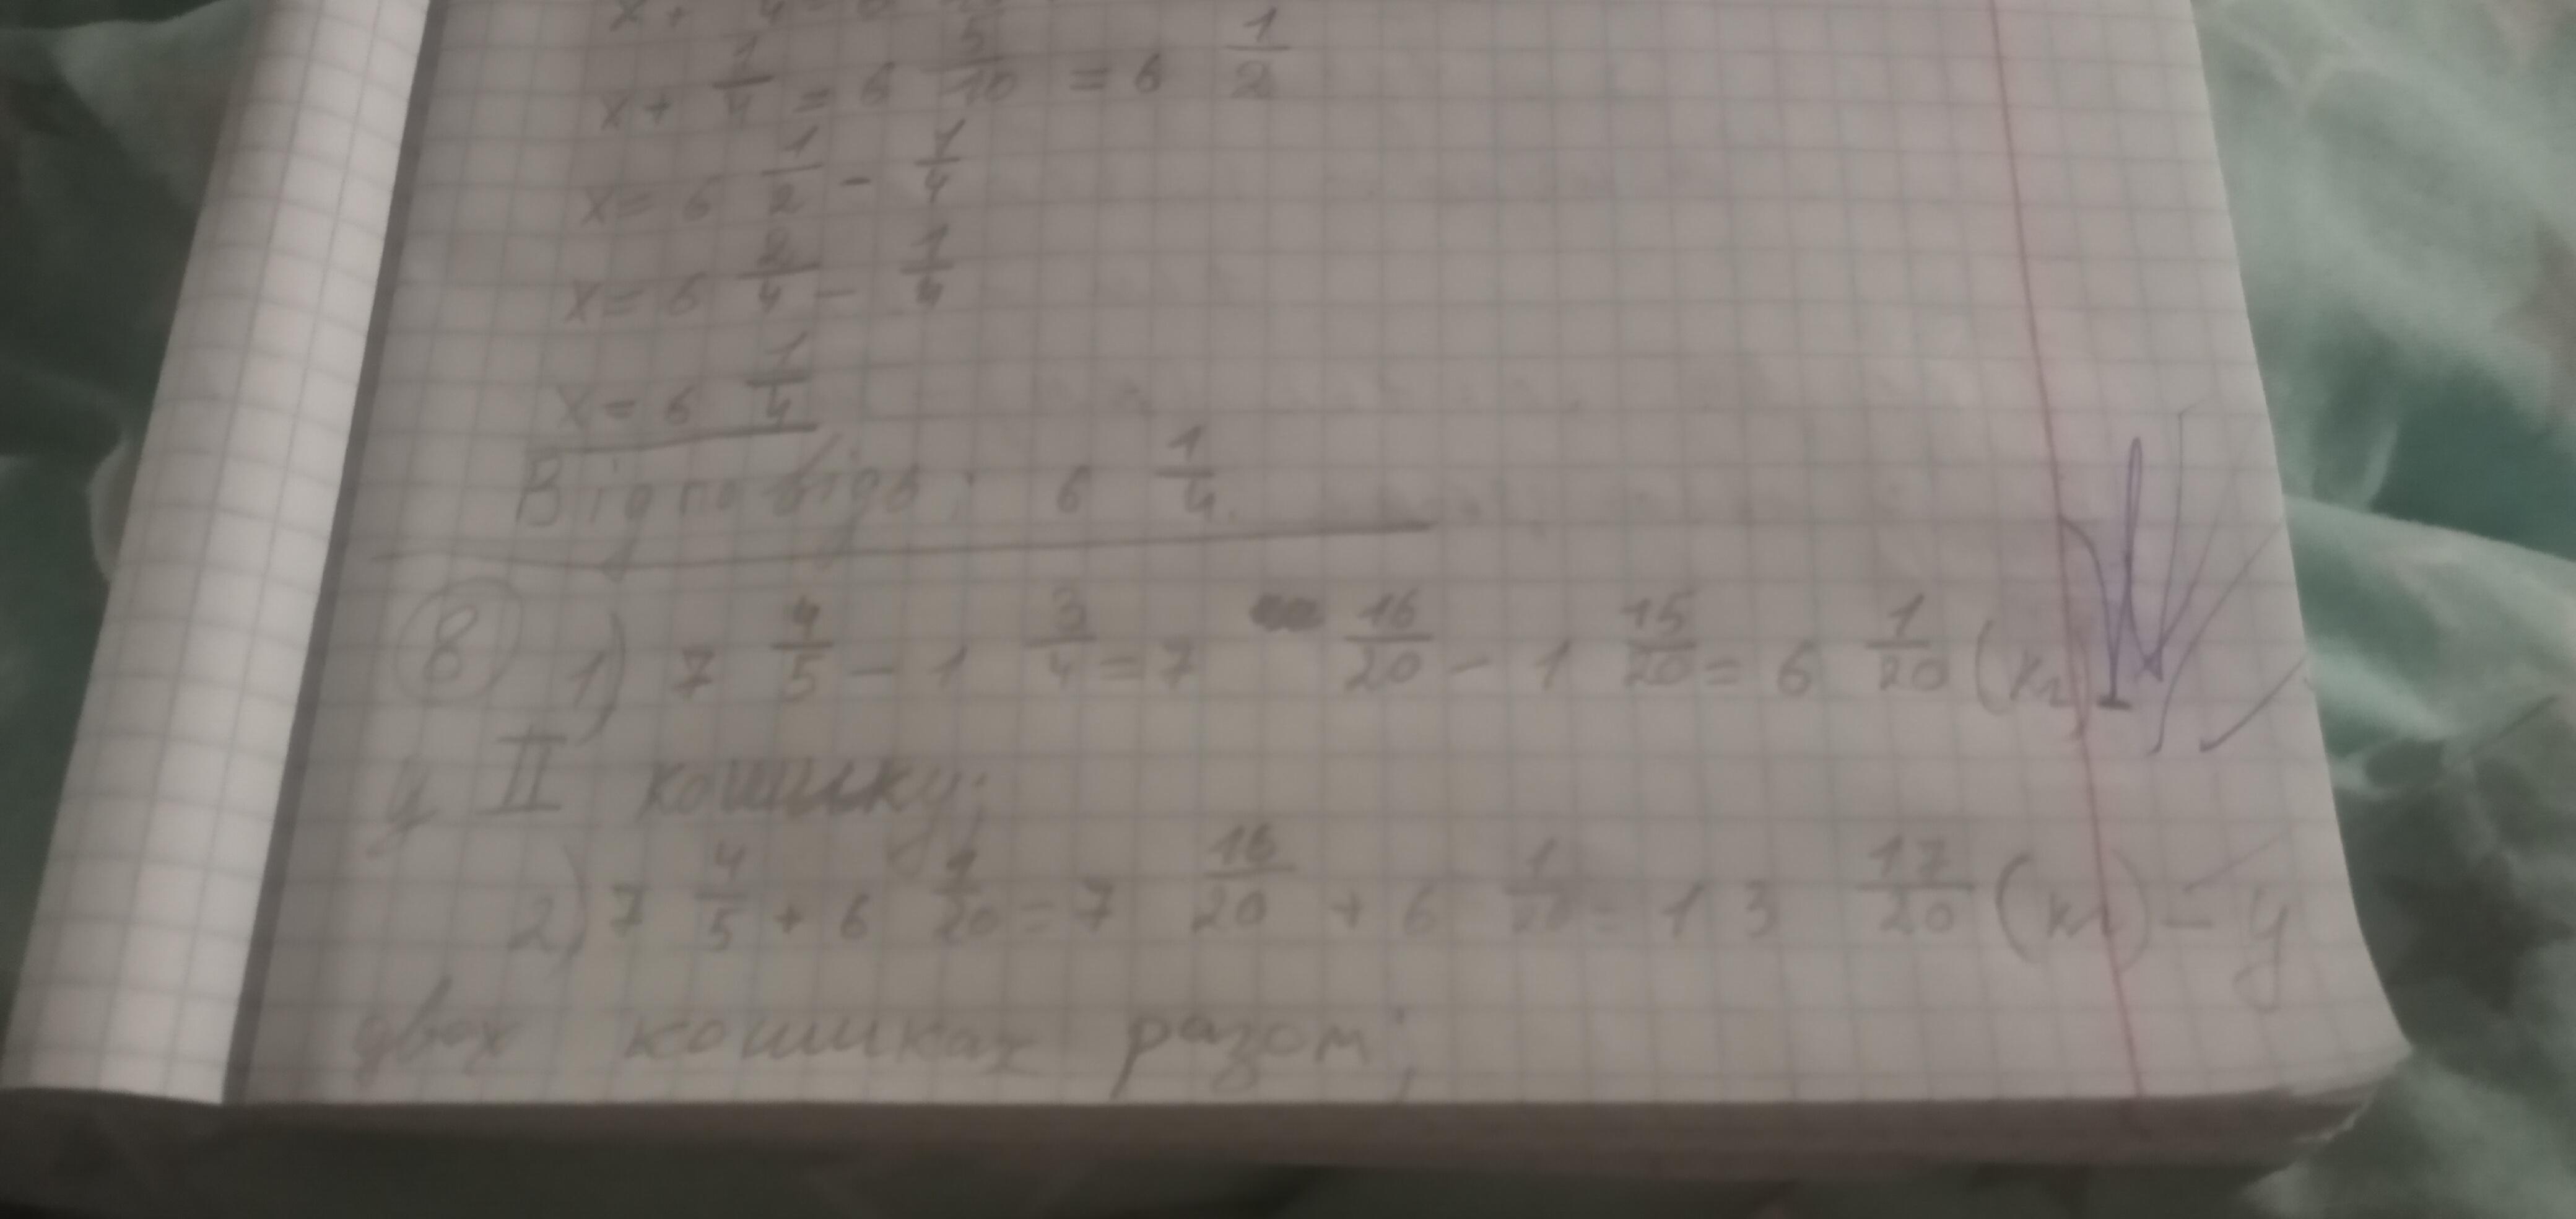 x + 1/4 = 6 5/10 = 6 1/2
x = 6 1/2 - 1/4
x = 6 2/4 - 1/4
x = 6 1/4
Відповідь: 6 1/4.
8 1) 7 4/5 - 1 3/4 = 7 16/20 - 1 15/20 = 6 1/20 (кг)
у II кошику;
2) 7 4/5 + 6 1/20 = 7 16/20 + 6 1/20 = 13 17/20 (кг) - у
двох кошиках разом;